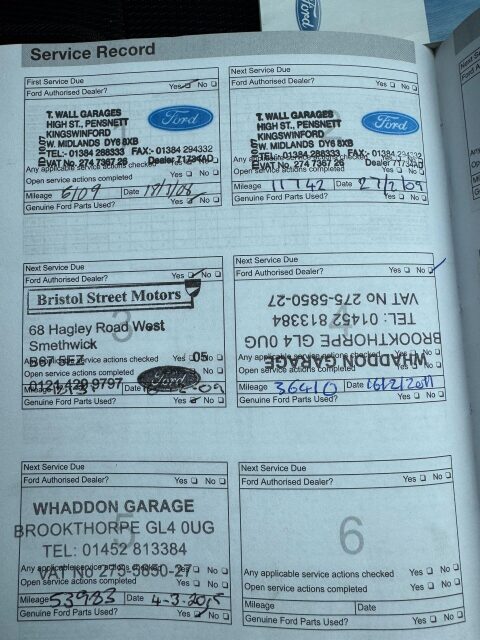 Ford
Service Record
First Service Due
Ford Authorised Dealer? Yes No
T. WALL GARAGES
HIGH ST., PENSNETT
KINGSWINFORD
W. MIDLANDS DY6 8XB
TEL:- 01384 288333 FAX:- 01384 294332
VAT No. 274 7367 26 Dealer 71734AD
Ford
1
Any applicable service actions checked
Open service actions completed
Mileage 6109 Date
Genuine Ford Parts Used? Yes No
Next Service Due
Ford Authorised Dealer? Yes No
T. WALL GARAGES
HIGH ST., PENSNETT
KINGSWINFORD
W. MIDLANDS DY6 8XB
TEL:- 01384 288333 FAX:- 01384
VAT No. 274 7367 26 Dealer
Ford
2
Open service actions completed
Mileage 11742 Date 27/2/09
Genuine Ford Parts Used? Yes No
Next Service Due
Ford Authorised Dealer? Yes No
Bristol Street Motors
3
68 Hagley Road West
Smethwick
B67 5EZ
05
0121 420 9797
Ford
service actions checked Yes No
Open service actions completed
Mileage Date
Genuine Ford Parts Used? Yes No
Next Service Due
Ford Authorised Dealer? Yes No
4
WHADDON GARAGE
BROOKTHORPE GL4 0UG
TEL: 01452 813384
VAT No 275-5850-27
Any applicable service actions checked
Open service actions completed
Mileage 36410 Date 16/2/2011
Genuine Ford Parts Used? Yes No
Next Service Due
Ford Authorised Dealer? Yes No
5
WHADDON GARAGE
BROOKTHORPE GL4 0UG
TEL: 01452 813384
VAT No 275-5850-27
Any applicable service actions checked Yes No
Open service actions completed Yes No
Mileage 53983 Date 4-3-2015
Genuine Ford Parts Used? Yes No
Next Service Due
Ford Authorised Dealer? Yes No
6
Any applicable service actions checked Yes No
Open service actions completed Yes No
Mileage Date
Genuine Ford Parts Used? Yes No